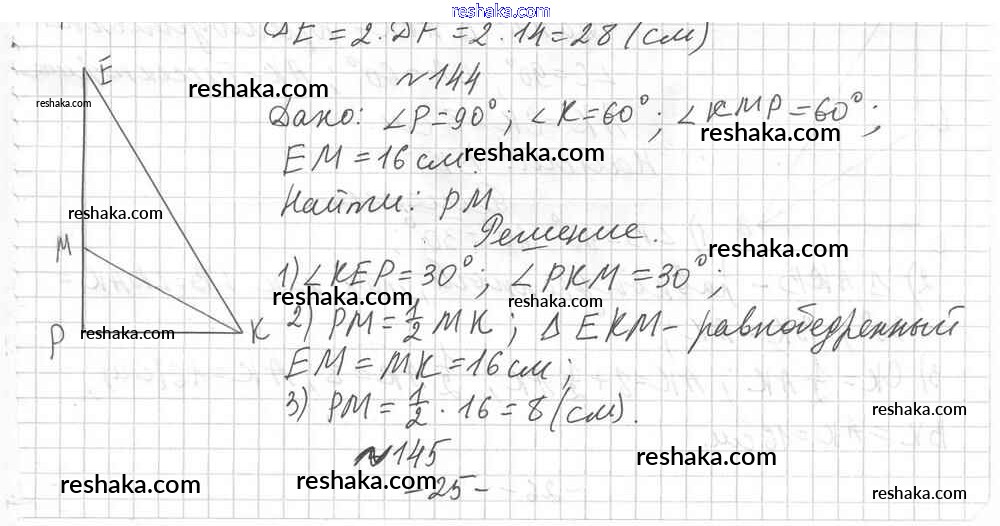 reshaka.com
ΔE = 2 · ΔF = 2 · 14 = 28 (см)
№144
reshaka.com
Дано: ∠P = 90°; ∠K = 60°; ∠KMP = 60°;
reshaka.com
EM = 16 см.
reshaka.com
Найти: PM
reshaka.com
Решение.
reshaka.com
1) ∠KEP = 30°; ∠PKM = 30°;
reshaka.com
2) PM = 1/2 MK; Δ EKM - равнобедренный
EM = MK = 16 см;
3) PM = 1/2 · 16 = 8 (см).
reshaka.com
№145
reshaka.com
- 25 -
reshaka.com
reshaka.com
reshaka.com
E
reshaka.com
reshaka.com
M
P
reshaka.com
K